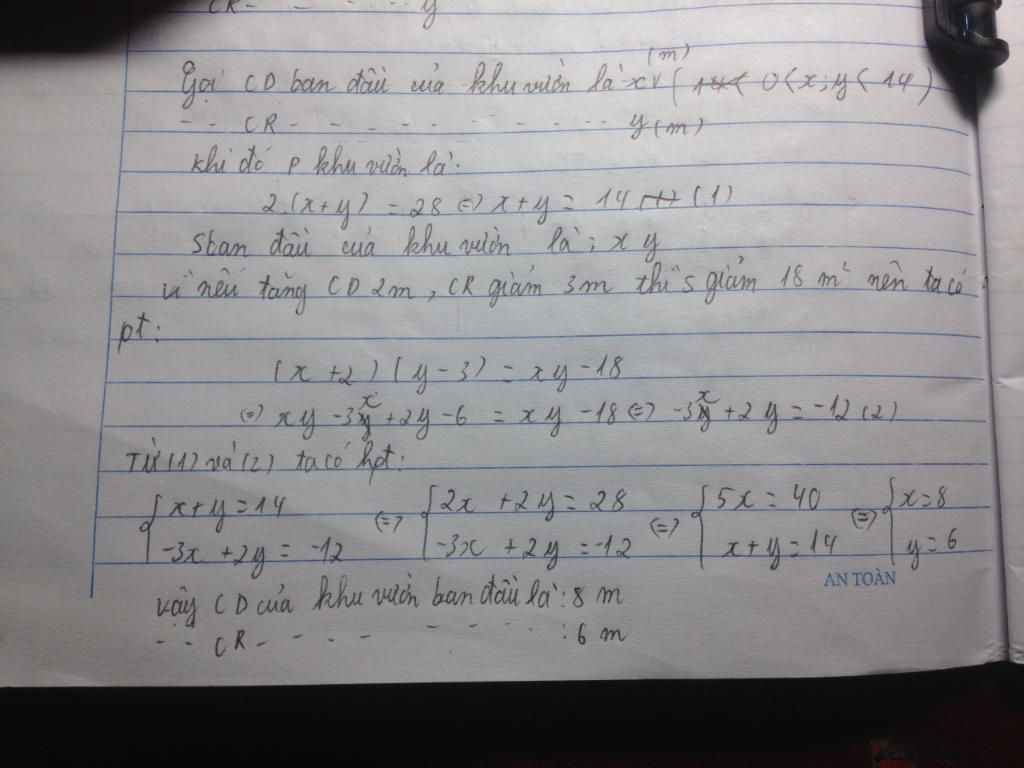 CR - - - - - - y
Gọi CD ban đầu của khu vườn là x (m) ( 0 < x; y < 14 )
- - CR - - - - - - - - - - y (m)
Khi đó P khu vườn là:
2.(x+y) = 28 <=> x+y = 14 (1)
Sban đầu của khu vườn là: x y
vì nếu tăng CD 2m, CR giảm 3m thì S giảm 18 m² nên ta có
pt:
(x +2) (y -3) = xy -18
<=> xy -3x +2y -6 = xy -18 <=> -3x +2y = -12 (2)
Từ (1) và (2) ta có hpt:
{ x+y = 14 <=> { 2x +2y = 28 <=> { 5x = 40 <=> { x=8
-3x +2y = -12 -3x +2y = -12 x+y = 14 y = 6
AN TOÀN
vậy CD của khu vườn ban đầu là: 8 m
- - CR - - - - - - - - : 6 m